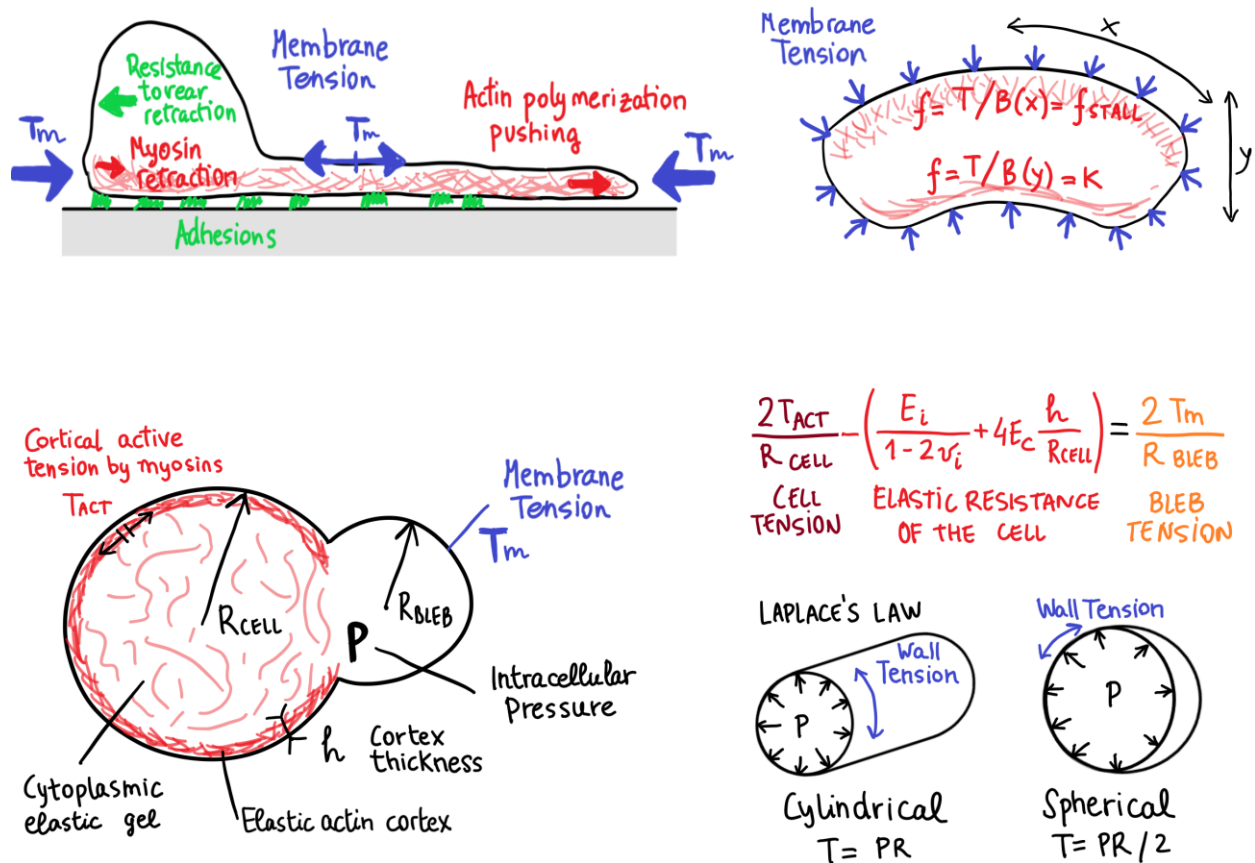 Resistance
to rear
retraction
Tm
Myosin
retraction
Membrane
Tension
Tm
Actin polymerization
pushing
Tm
Adhesions
Membrane
Tension
x
f = T/B(x) = fSTALL
f = T/B(y) = K
y
Cortical active
tension by myosins
TACT
RCELL
RBLEB
Membrane
Tension
Tm
P
Intracellular
Pressure
h
Cortex
thickness
Cytoplasmic
elastic gel
Elastic actin cortex
2TACT / RCELL - (Ei / 1-2νi + 4Ec h / RCELL) = 2Tm / RBLEB
CELL
TENSION
ELASTIC RESISTANCE
OF THE CELL
BLEB
TENSION
LAPLACE'S LAW
Wall
Tension
P
Cylindrical
T = PR
Wall Tension
P
Spherical
T = PR/2